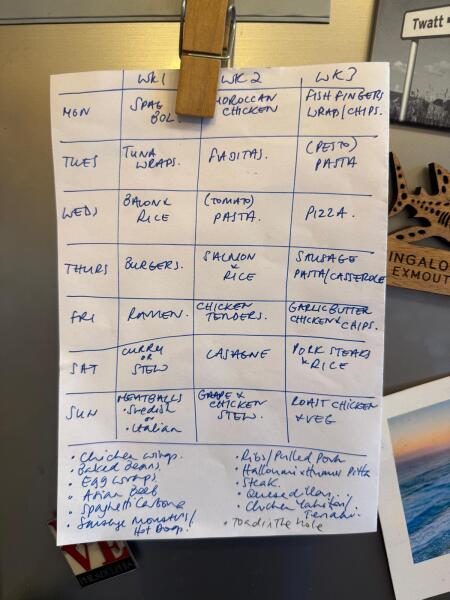 Twatt
WK1 WK2 WK3
MON SPAG BOL. MOROCCAN CHICKEN FISH FINGERS WRAP/CHIPS.
TUES TUNA WRAPS. FAJITAS. (PESTO) PASTA
WEDS RICE (TOMATO) PASTA. PIZZA.
THURS BURGERS. SALMON & RICE SAUSAGE PASTA/CASSEROLE
FRI RAMEN. CHICKEN TENDERS. GARLIC BUTTER CHICKEN & CHIPS.
SAT CURRY OR STEW LASAGNE PORK STEAKS & RICE
SUN MEATBALLS • Swedish or • Italian CHICKEN STEW. ROAST CHICKEN & VEG
• Chicken wings.
• Baked Beans.
• Egg wraps
• Asian Beef
• Spaghetti Carbone
• Sausage Monsters/
Hot Dogs.
• Ribs/Pulled Pork
• Halloumi & Humus Pitta
• Steak.
• Quesadillas.
• Chicken
• Toad in the Hole
INGALO
EXMOUT
VE
PHILADELPHIA